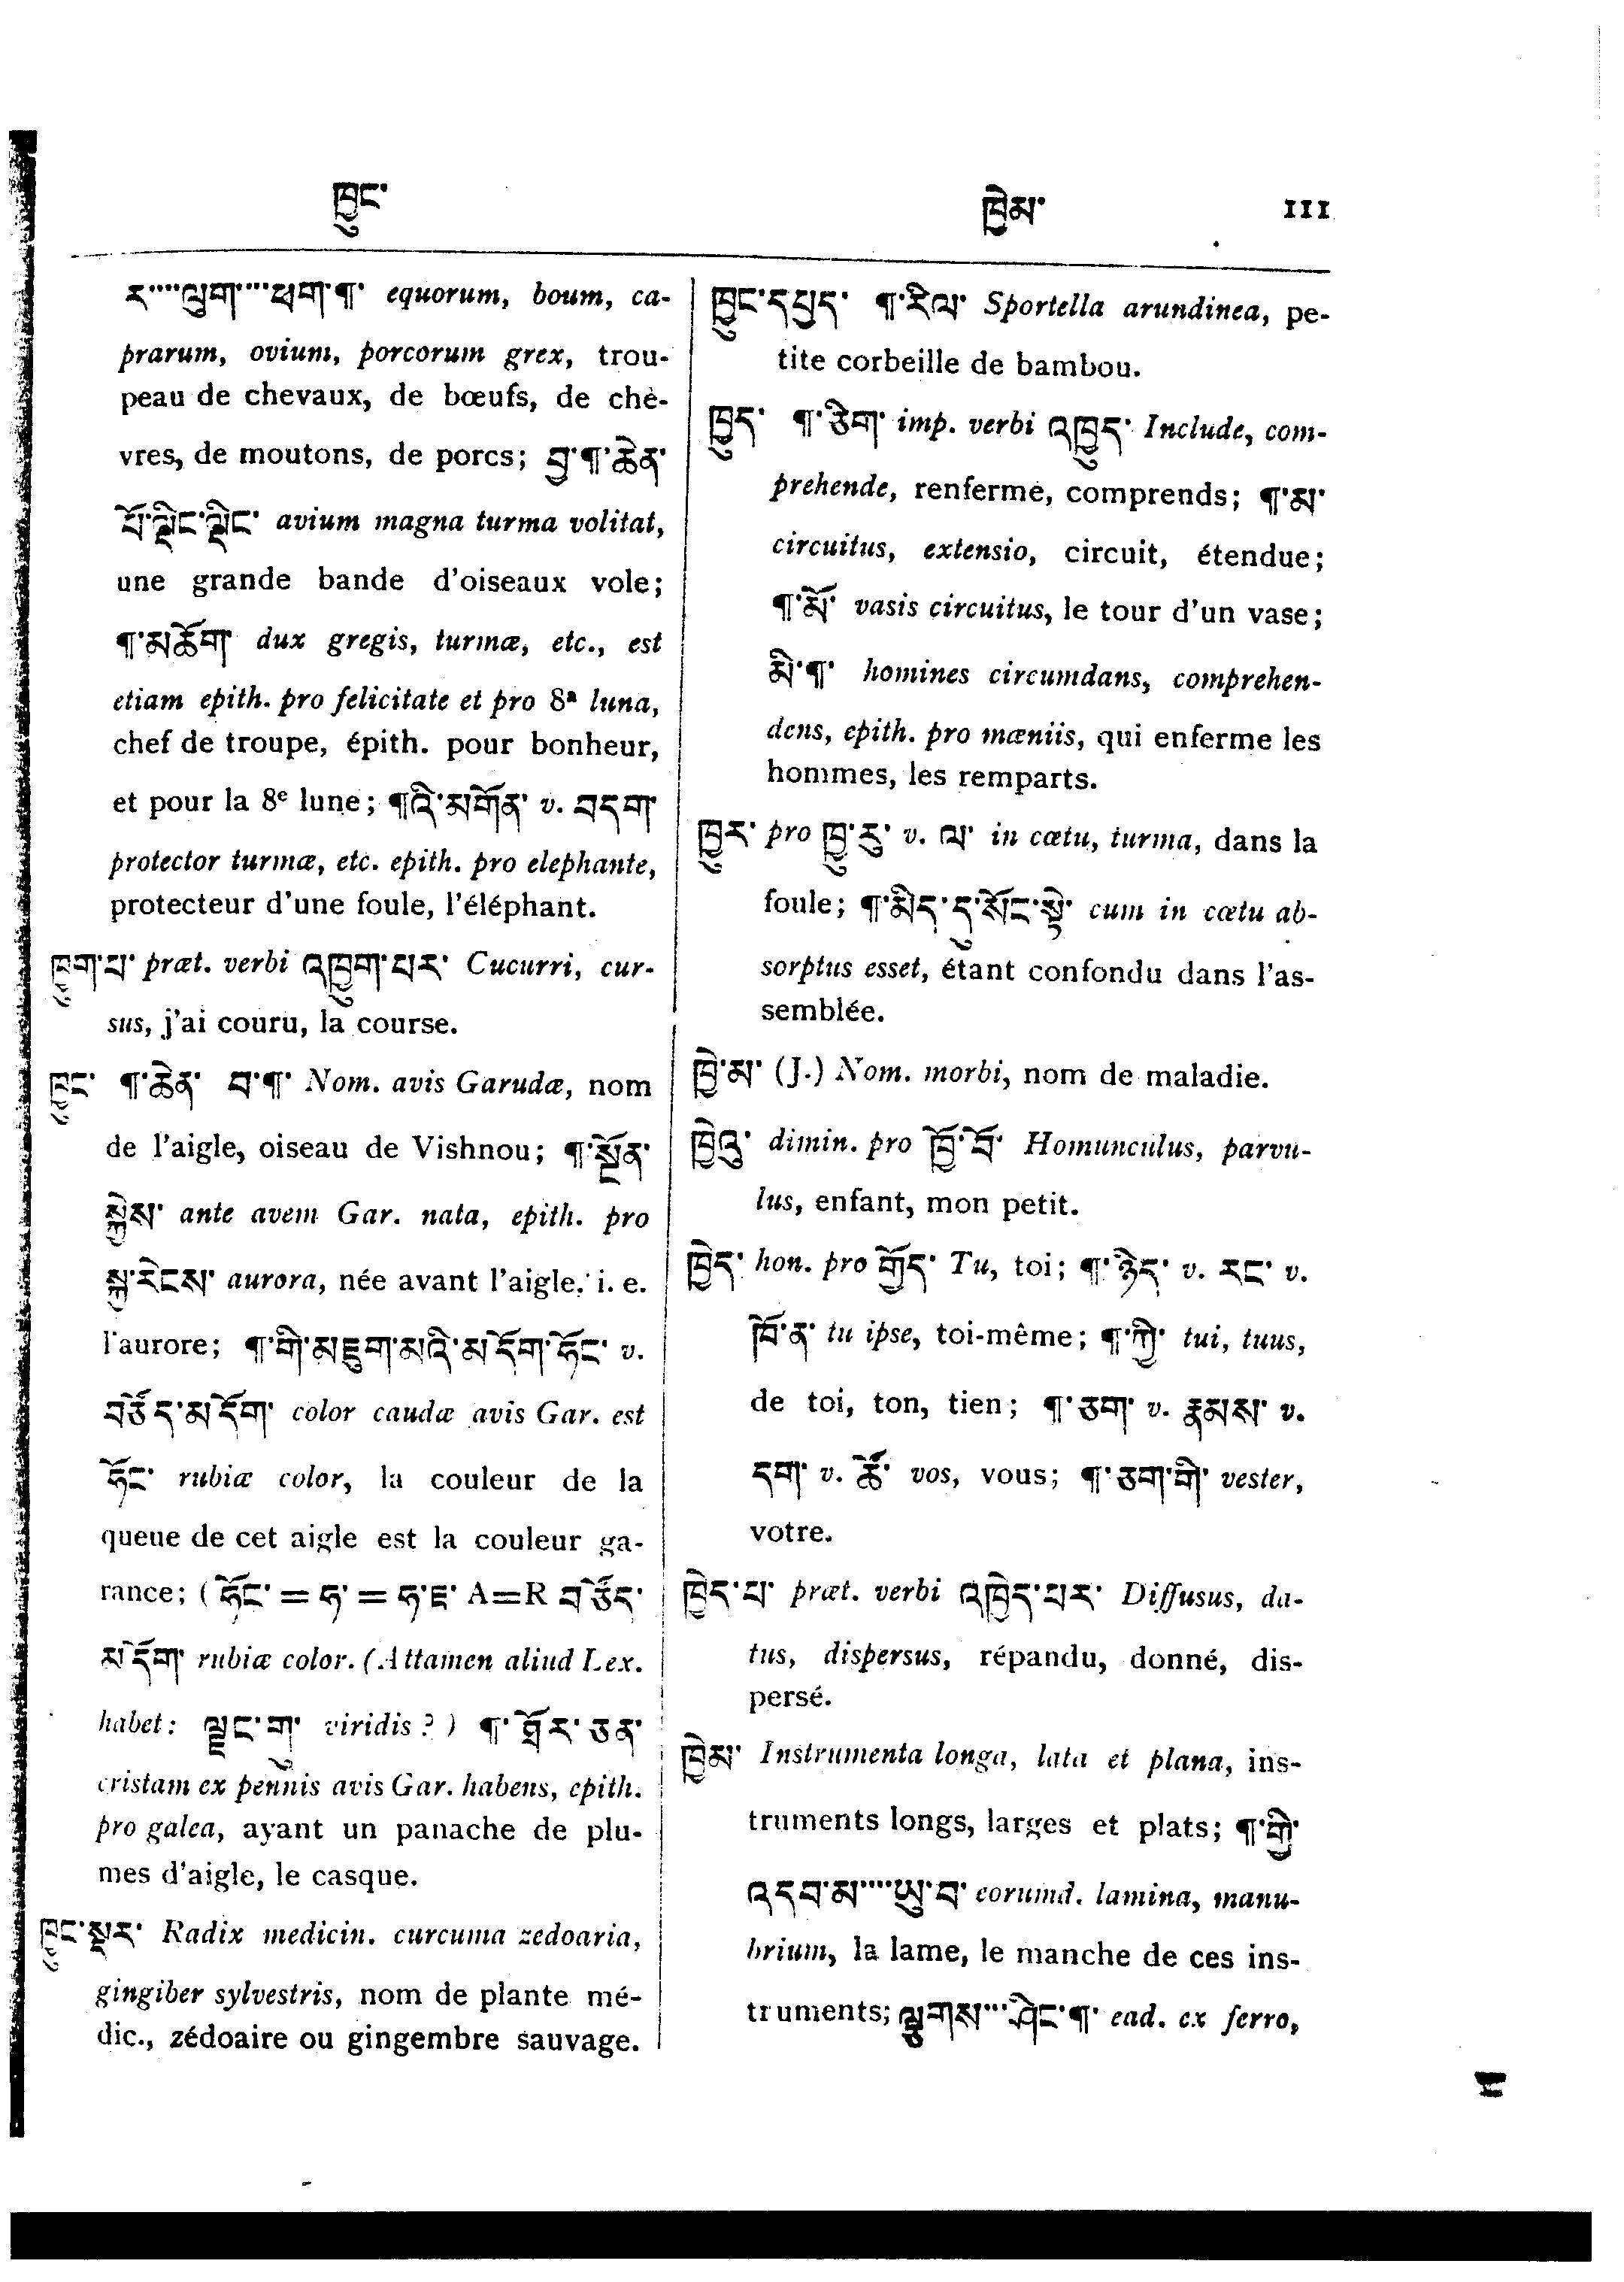 ཁྱུང་ ཁྱེམ་ 111
ར་་་་ལུག་་་་ཕག་¶་ equorum, boum, ca-
prarum, ovium, porcorum grex, trou-
peau de chevaux, de bœufs, de chè-
vres, de moutons, de porcs; བྱ་¶་ཆེན་
པོ་ལྡིང་ལྡིང་ avium magna turma volitat,
une grande bande d'oiseaux vole;
¶་མཆོག་ dux gregis, turmæ, etc., est
etiam epith. pro felicitate et pro 8ª luna,
chef de troupe, épith. pour bonheur,
et pour la 8e lune; ¶འི་མགོན་ v. བདག་
protector turmæ, etc. epith. pro elephante,
protecteur d'une foule, l'éléphant.
ཁྱུག་པ་ præt. verbi འཁྱུག་པར་ Cucurri, cur-
sus, j'ai couru, la course.
ཁྱུང་ ¶་ཆེན་ བ་¶་ Nom. avis Garudæ, nom
de l'aigle, oiseau de Vishnou; ¶་སྔོན་
སྐྱེས་ ante avem Gar. nata, epith. pro
སྐྱ་རེངས་ aurora, née avant l'aigle, i. e.
l'aurore; ¶་གི་མཇུག་མའི་མདོག་ཧོང་ v.
བཙོད་མདོག་ color caudæ avis Gar. est
ཧོང་ rubiæ color, la couleur de la
queue de cet aigle est la couleur ga-
rance; (ཧོང་ = ཧ་ = ཧ་ཇ་ A=R བཙོད་
མདོག་ rubiæ color. (Attamen aliud Lex.
habet: ལྗང་གུ་ viridis?) ¶་ཐོར་ཅན་
cristam ex pennis avis Gar. habens, epith.
pro galea, ayant un panache de plu-
mes d'aigle, le casque.
ཁྱུང་སྡར་ Radix medicin. curcuma zedoaria,
gingiber sylvestris, nom de plante mé-
dic., zédoaire ou gingembre sauvage.
ཁྱུང་དཔྱད་ ¶་རིལ་ Sportella arundinea, pe-
tite corbeille de bambou.
ཁྱུད་ ¶་ཅིག་ imp. verbi འཁྱུད་ Include, com-
prehende, renferme, comprends; ¶་མ་
circuitus, extensio, circuit, étendue;
¶་མོ་ vasis circuitus, le tour d'un vase;
མི་¶་ homines circumdans, comprehen-
dens, epith. pro mæniis, qui enferme les
hommes, les remparts.
ཁྱུར་ pro ཁྱུ་རུ་ v. ལ་ in cœtu, turma, dans la
foule; ¶་མིད་དུ་སོང་སྟེ་ cum in cœtu ab-
sorptus esset, étant confondu dans l'as-
semblée.
ཁྱེ་མ་ (J.) Nom. morbi, nom de maladie.
ཁྱེའུ་ dimin. pro ཁྱོ་བོ་ Homunculus, parvu-
lus, enfant, mon petit.
ཁྱེད་ hon. pro ཁྱོད་ Tu, toi; ¶་ཉིད་ v. རང་ v.
ཁོ་ན་ tu ipse, toi-même; ¶་ཀྱི་ tui, tuus,
de toi, ton, tien; ¶་ཅག་ v. རྣམས་ v.
དག་ v. ཚོ་ vos, vous; ¶་ཅག་གི་ vester,
votre.
ཁྱེད་པ་ præt. verbi འཁྱེད་པར་ Diffusus, da-
tus, dispersus, répandu, donné, dis-
persé.
ཁྱེམ་ Instrumenta longa, lata et plana, ins-
truments longs, larges et plats; ¶་གྱི་
འདབ་མ་་་་ཡུ་བ་ eorumd. lamina, manu-
brium, la lame, le manche de ces ins-
truments; ལྕགས་་་་ཤིང་¶་ ead. ex ferro,